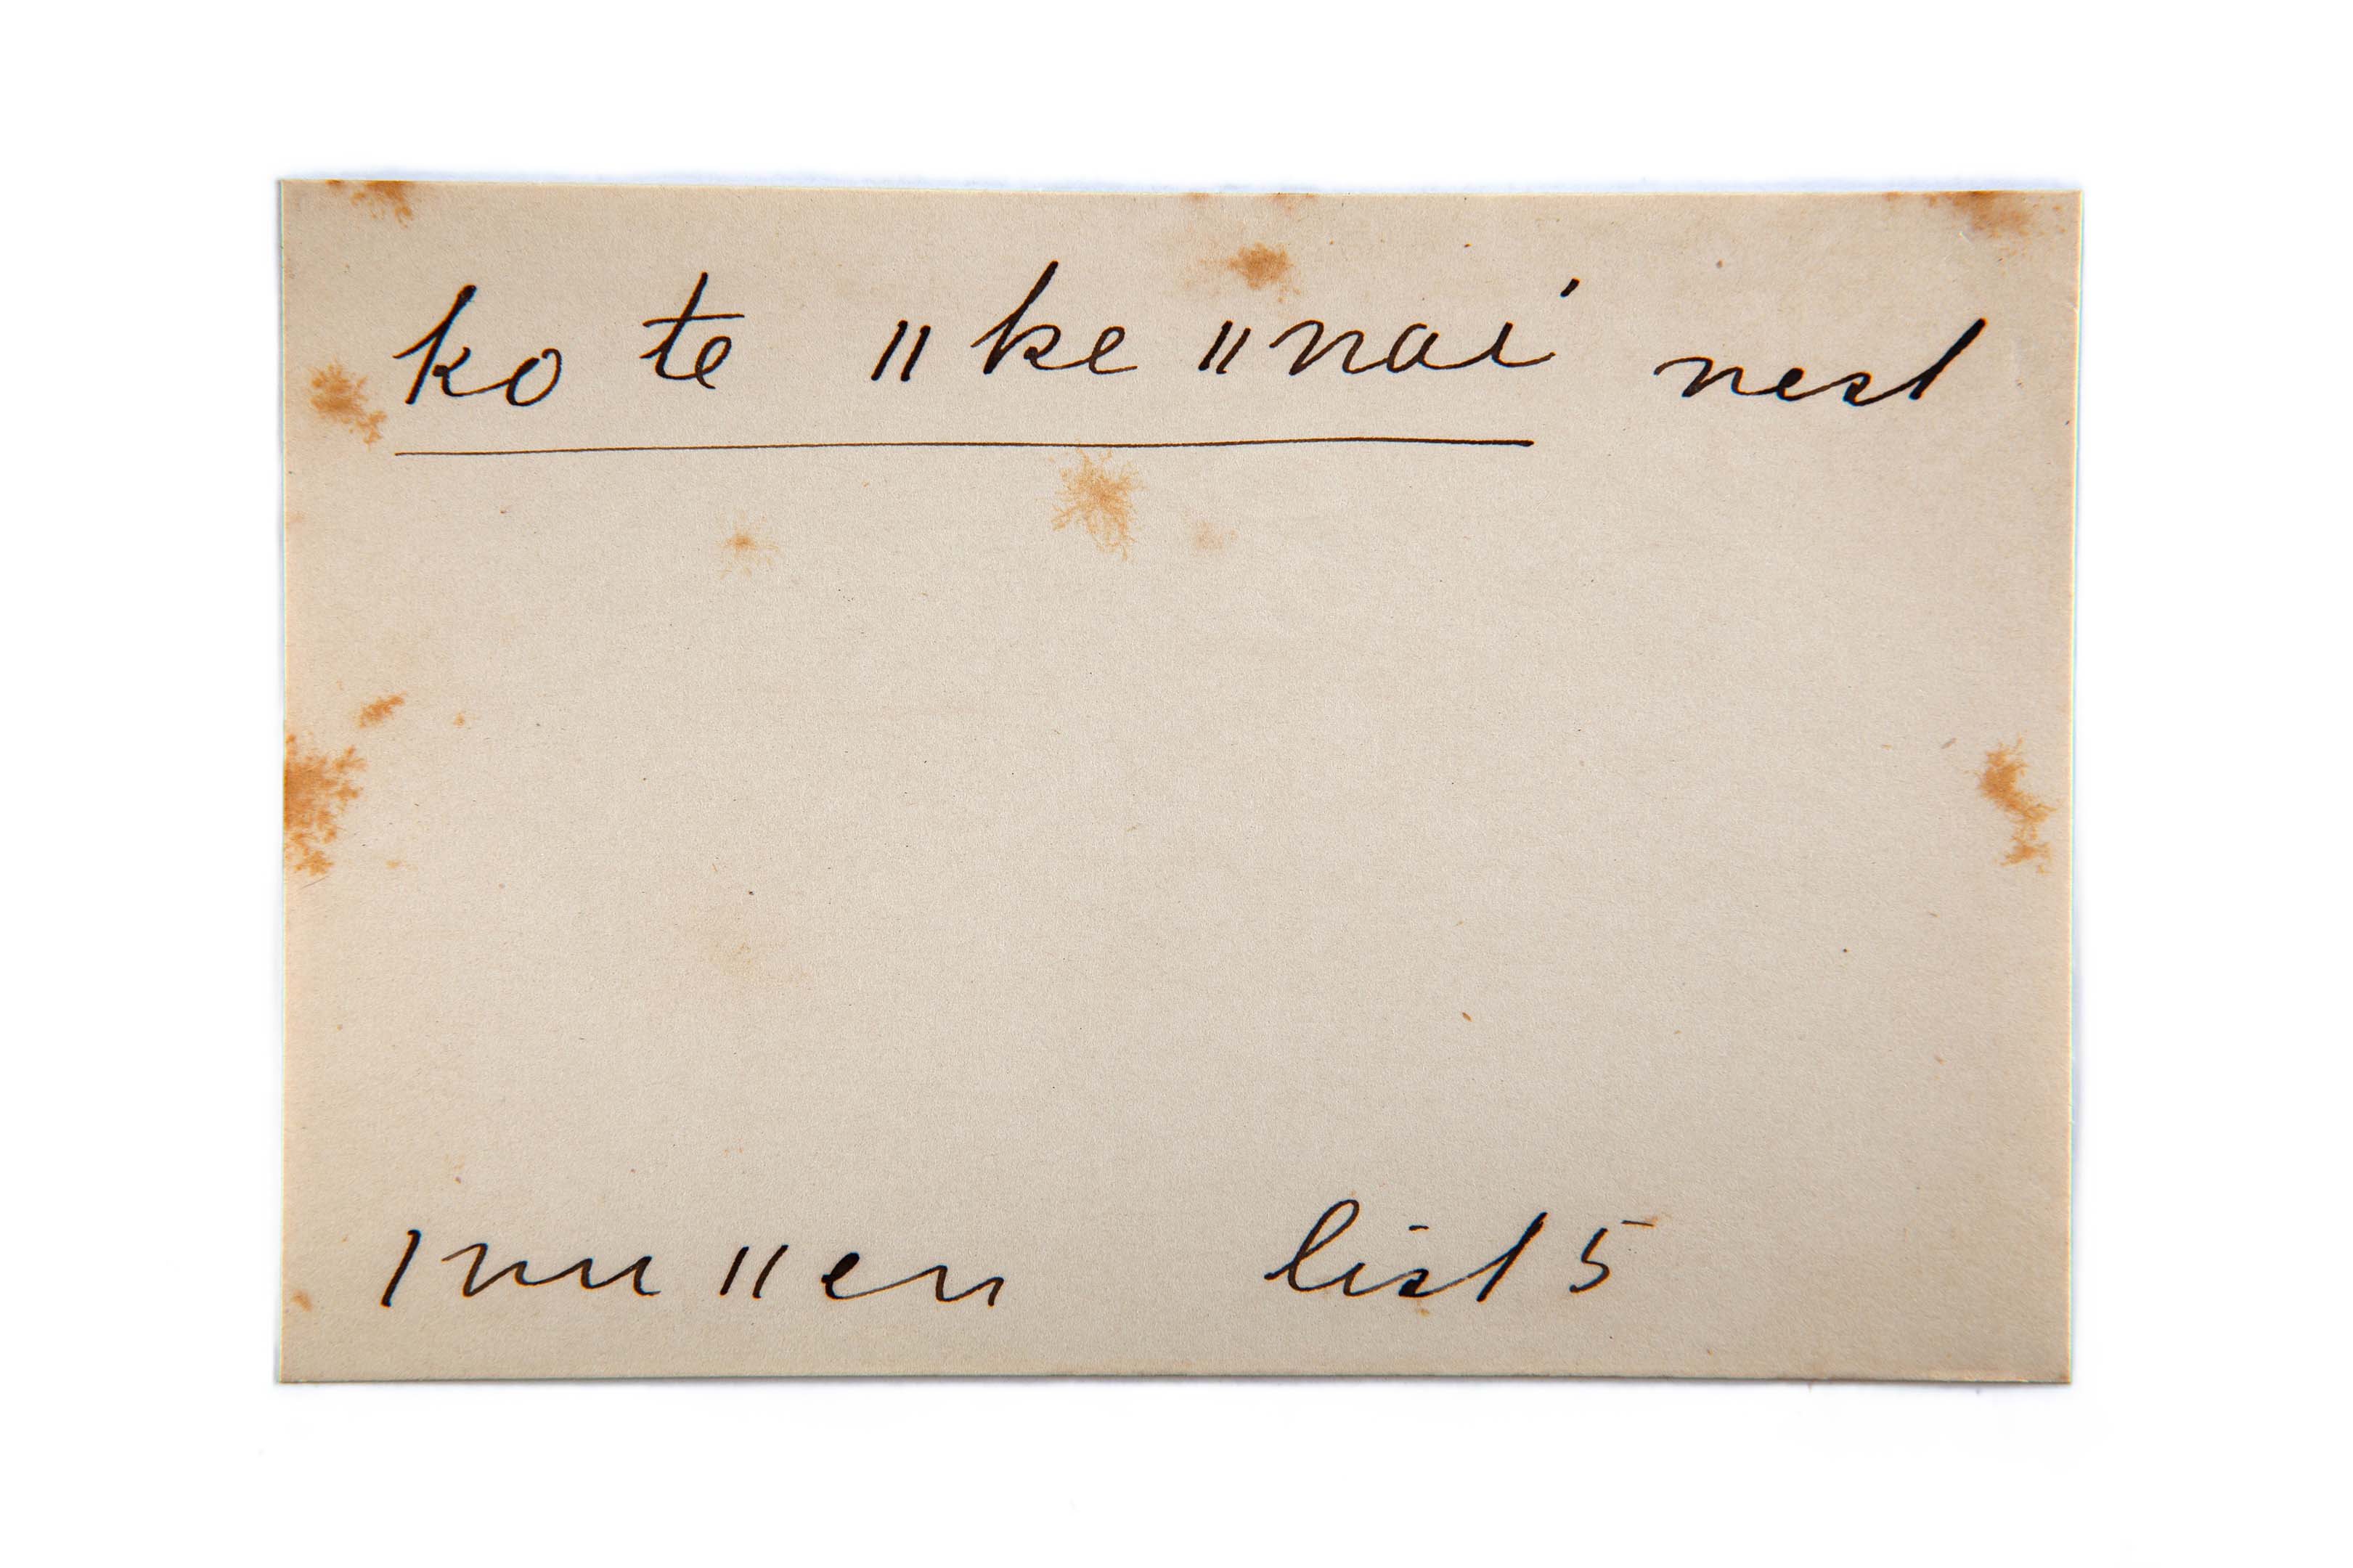 ko te ǁke ǁnai nest
ǀnu ǁen list 5